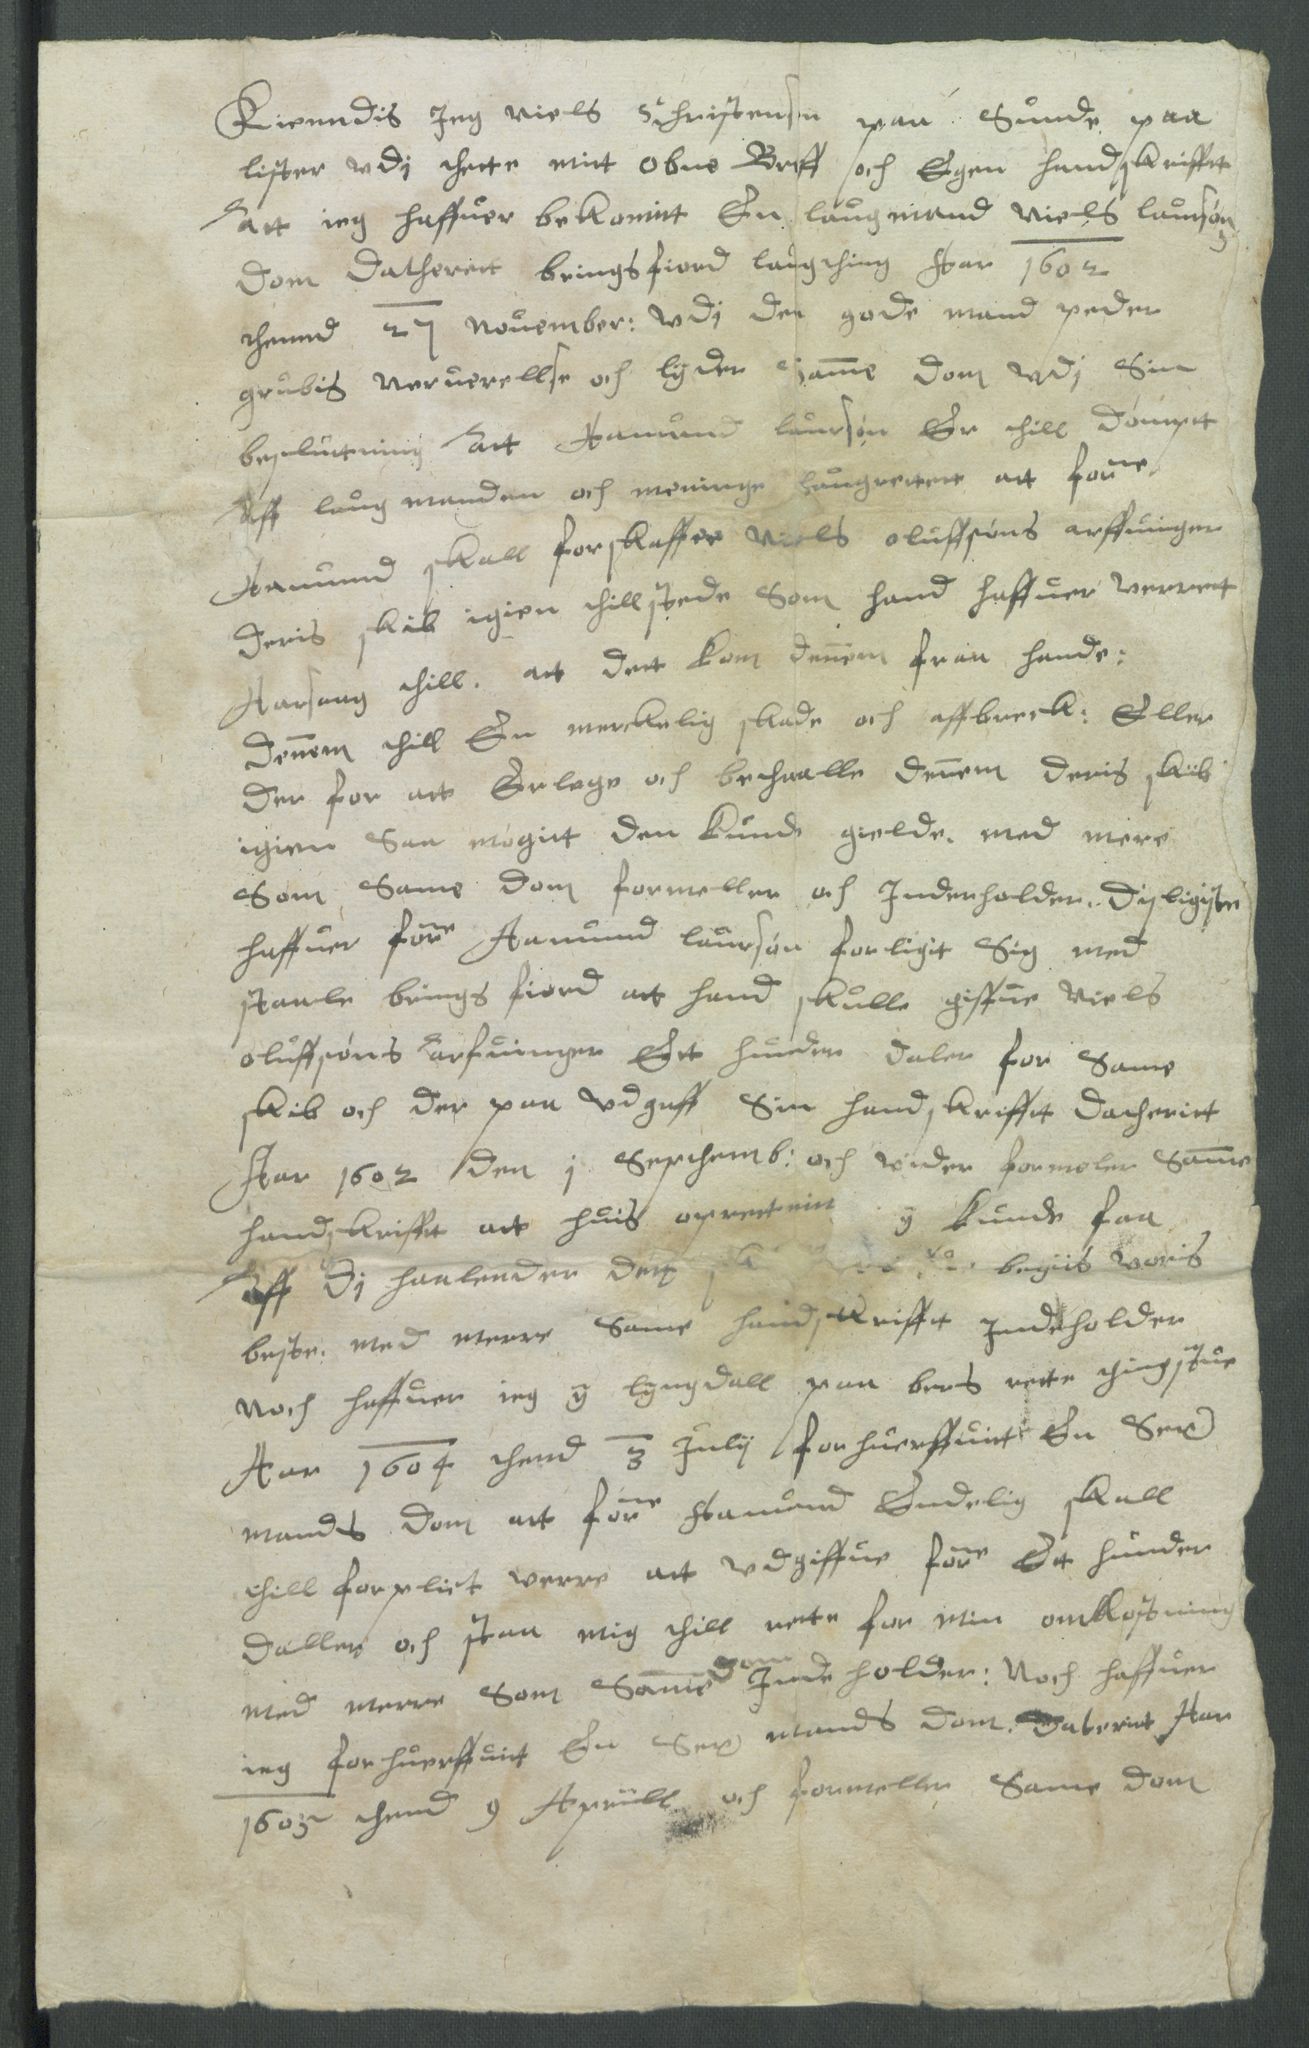 Kiemndis Jeg niels Christensen paa Sunde paa
lister vdj thette mitt obne Breff och Egen handskrifftt
att ieg haffuer bekomitt En laugmand niels laursøns
dom datheritt bringsfiord laugthing Aar 1602
thennd 27 Nouember: vdj den gode mand peder
grubis neruerellse och lyder Same dom vdj Sin
beslutning att Aamund laursøn Er thill dømptt
Aff laugmanden och meninge laugrettett att forne
Aamund skall forskaffee niels oluffsøns arffuinger
deris skib igien thillstede Som hand haffuer verrett
Aarsaag thill. att dett kom dennem fraa hende:
dennem thill En merckelig skade och affbreck: Eller
der for att Erlege och bethaalle dennem deris skib
igien Saa møgitt den kunde gielde. med mere
Som Same dom formeller och Inderholder. Disligiste
haffuer forne Aamund laursøn forligit Sig med
staale brings fiord att hand skulle giffue Niels
oluffsøns arfuinger Ett hunder daler for Same
skib och der paa vdgaff Sin handskrifftt datheritt
Aar 1602 den j Septhemb: och vider formeler Same
handskrifftt att huis oprettning y kunde faa
Aff dj haalender der begiis voris
beste. med merre Same handskrifftt Indeholder
Noch haffuer ieg y lyngdall paa bers rette thingstue
Aar 1604 thend 3 Julij forhuerffuitt En Sex
mands dom att forne Aamund Endelig skall
thill forplict verre att vdgiffue forne Ett hunder
daller och staa mig thill rette for min omkostning
med merre Som Same dom Inde holder: Noch haffuer
ieg forhuerffuitt En Sex mands dom. Daterit Aar
1603 thend 9 Apriill och formeller Same dom